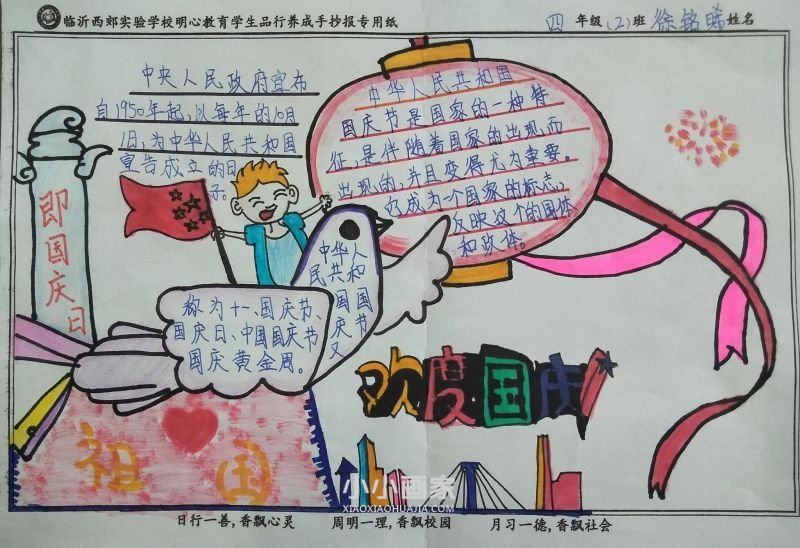 临沂西郊实验学校明心教育学生品行养成手抄报专用纸
四年级(2)班徐铭晞姓名
中央人民政府宣布
自1950年起,以每年的10月
1日,为中华人民共和国
宣告成立的日
子。
即国庆日
中华人民共和国
国庆节是国家的一种特
征,是伴随着国家的出现而
出现的,并且变得尤为重要。
仍成为一个国家的标志,
反映这个的国体
和政体。
中华人
民共和
国国
庆节
又
称为十一、国庆节、
国庆日、中国国庆节
国庆黄金周。
欢度国庆!
祖国
小小画家
XIAOXIAOHUAJIA.COM
日行一善,香飘心灵 周明一理,香飘校园 月习一德,香飘社会